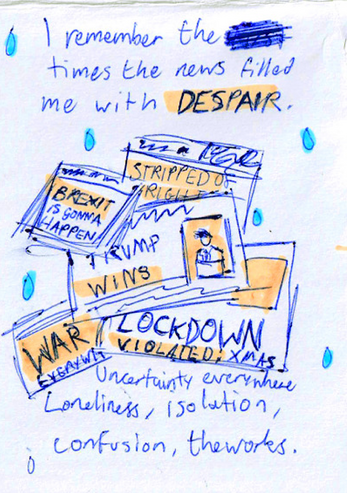 I remember the
times the news filled
me with DESPAIR.
STRIPPED OF
RIGHTS
BREXIT
IS GONNA
HAPPEN
TRUMP
WINS
LOCKDOWN
VIOLATED: XMAS
WAR
Uncertainty everywhere
Loneliness, isolation,
confusion, theworks.